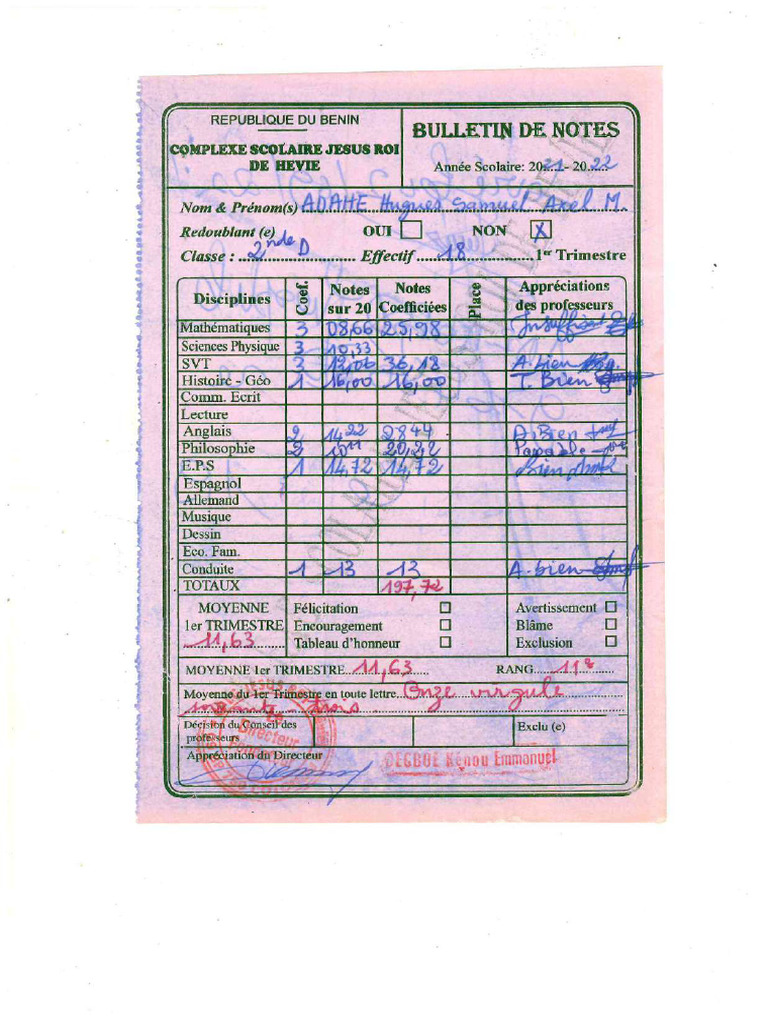 REPUBLIQUE DU BENIN
COMPLEXE SCOLAIRE JESUS ROI
DE HEVIE
BULLETIN DE NOTES
Année Scolaire: 2021 - 2022
Nom & Prénom(s) ADAHE Hugues Samuel Axel M.
Redoublant (e) OUI NON X
Classe : 2nde D Effectif 18 1er Trimestre
Disciplines Coef. Notes sur 20 Notes Coefficiées Place Appréciations des professeurs
Mathématiques 3 08,66 25,98 Insuffisant
Sciences Physique 3 10,33
SVT 3 12,06 36,18 A. bien
Histoire - Géo 1 16,00 16,00 T. Bien
Comm. Ecrit
Lecture
Anglais 2 14,22 28,44 A. Bien
Philosophie 2 10,11 20,22 Passable
E.P.S 1 14,72 14,72 Bien
Espagnol
Allemand
Musique
Dessin
Eco. Fam.
Conduite 1 13 13 A. bien
TOTAUX 197,72
MOYENNE Félicitation Avertissement
1er TRIMESTRE Encouragement Blâme
11,63 Tableau d'honneur Exclusion
MOYENNE 1er TRIMESTRE 11,63 RANG 11e
Moyenne du 1er Trimestre en toute lettre Onze virgule
soixante - trois
Décision du Conseil des
professeurs
Exclu (e)
Appréciation du Directeur
Le
Directeur
Fondateur
DEGBOE Kénou Emmanuel